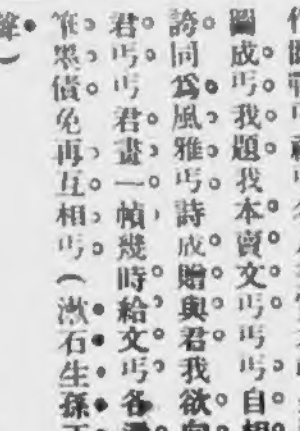 圖成丐我題我本賣文丐丐丐自
誇同爲風雅丐詩成贈與君我欲
君丐丐君畫一幀幾時給文丐各
筆墨債免再互相丐(漱石生孫
聲)